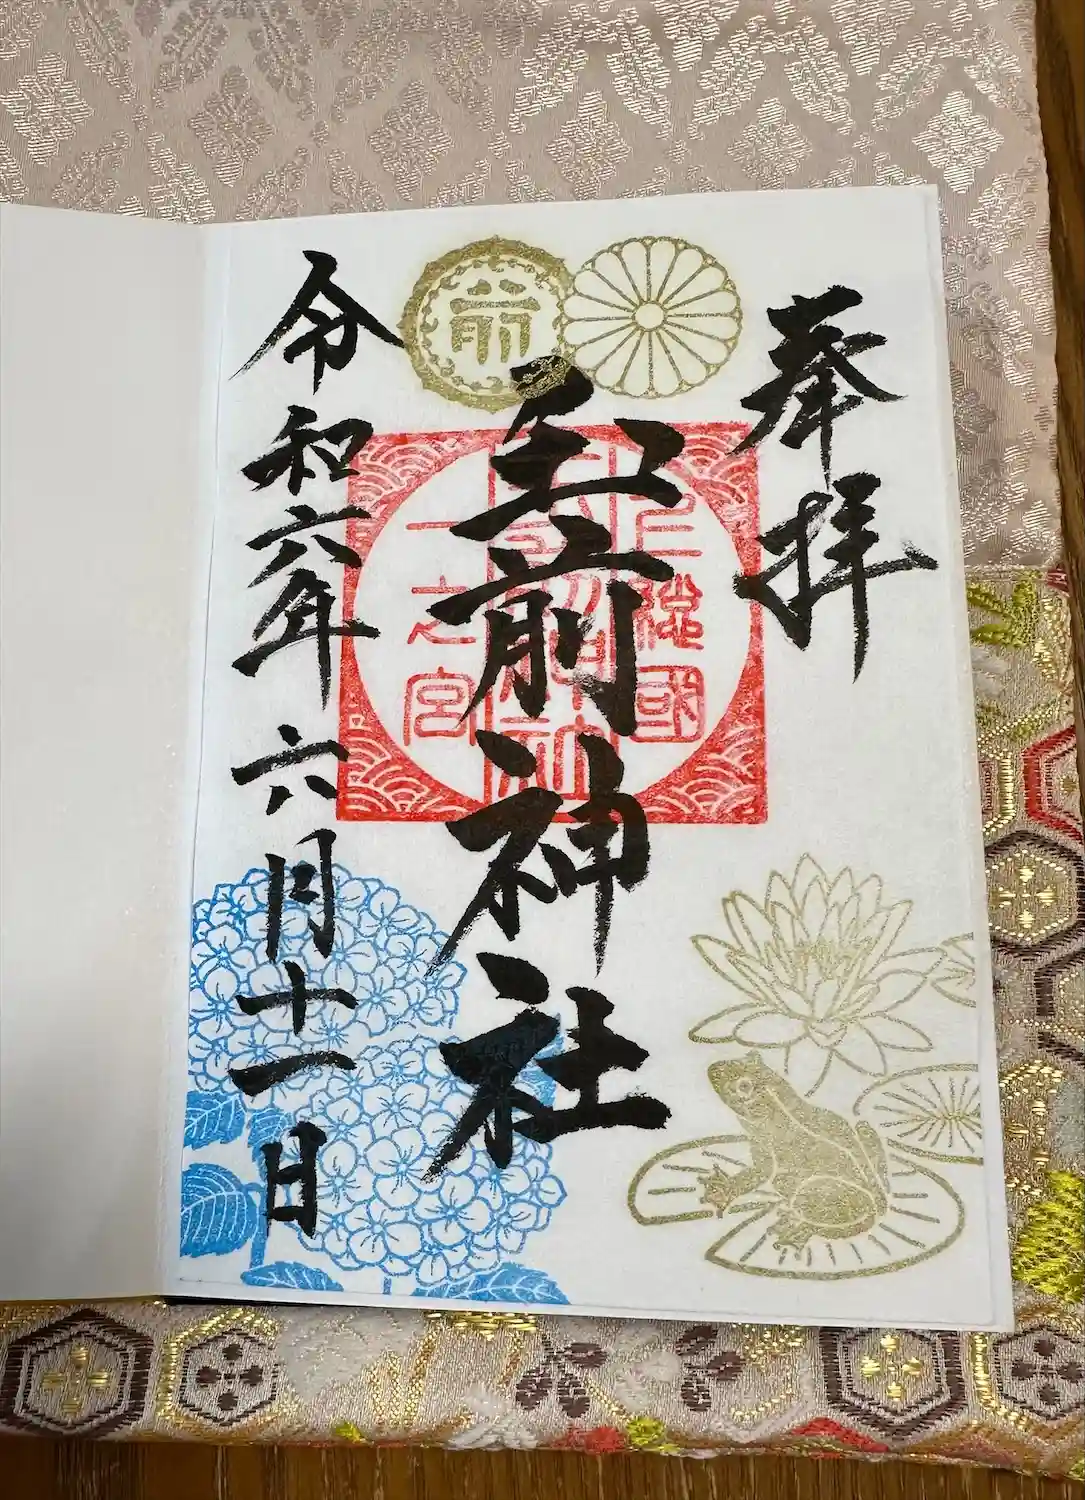 奉拝
前
上総國
玉前神社
一之宮
玉前神社
令和六年六月十一日